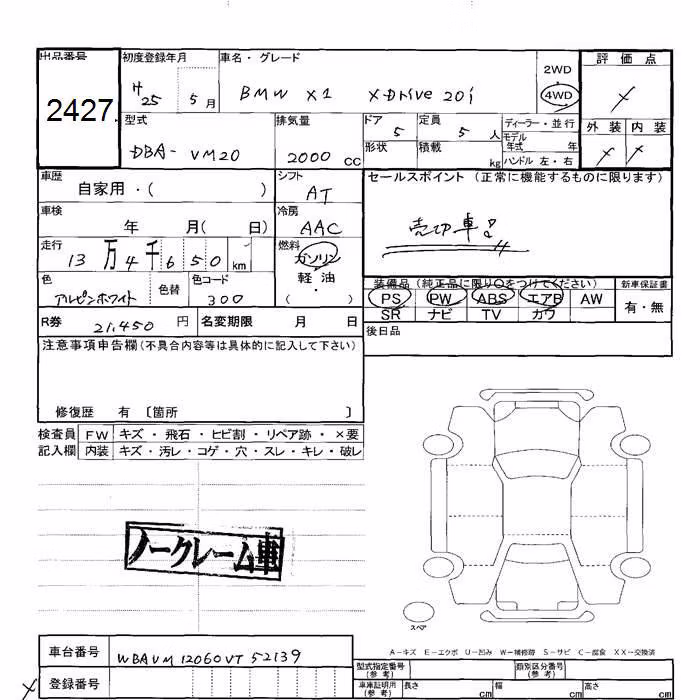 出品番号
2427
初度登録年月
H25 5 月
車名・グレード
BMW X1 XDrive 20i
2WD
4WD
評価点
外装 内装
型式
DBA- VM20
排気量
2000 CC
ドア
5
定員
5 人
形状
積載
kg
ディーラー・並行
モデル年式 年
ハンドル 左・右
車歴
自家用・( )
シフト
AT
セールスポイント (正常に機能するものに限ります)
売切車!
車検
年 月( 日)
冷房
AAC
走行
13 万 4 千 6 5 0 km
燃料
ガソリン
軽油
・( )
色
アルピンホワイト
色替
色コード
300
装備品 (純正品に限り○をつけてください)
PS PW ABS エアB AW
SR ナビ TV カワ
新車保証書
有・無
R券 21,450 円
名変期限 月 日
後日品
注意事項申告欄(不具合内容等は具体的に記入して下さい)
修復歴 有 〔箇所 〕
検査員
記入欄
FW キズ・飛石・ヒビ割・リペア跡・×要
内装 キズ・汚レ・コゲ・穴・スレ・キレ・破レ
ノークレーム車
スペア
A-キズ E-エクボ U-凹み W-補修跡 S-サビ C-腐食 XX-交換済
車台番号
WBAVM12060VT52139
登録番号
型式指定番号
(参考)
類別区分番号
(参考)
車庫証明用
(参考)
長さ cm
幅 cm
高さ cm